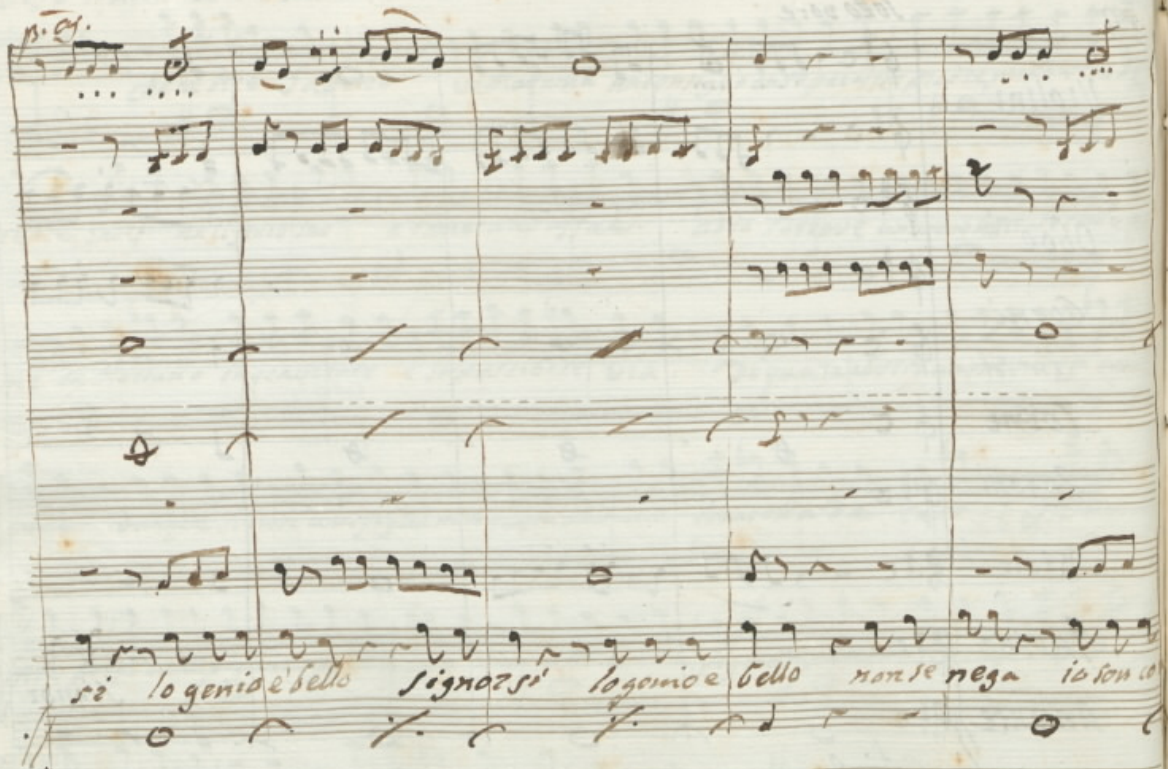 si lo genio è bello signorsi lo genio e bello non se nega io son co